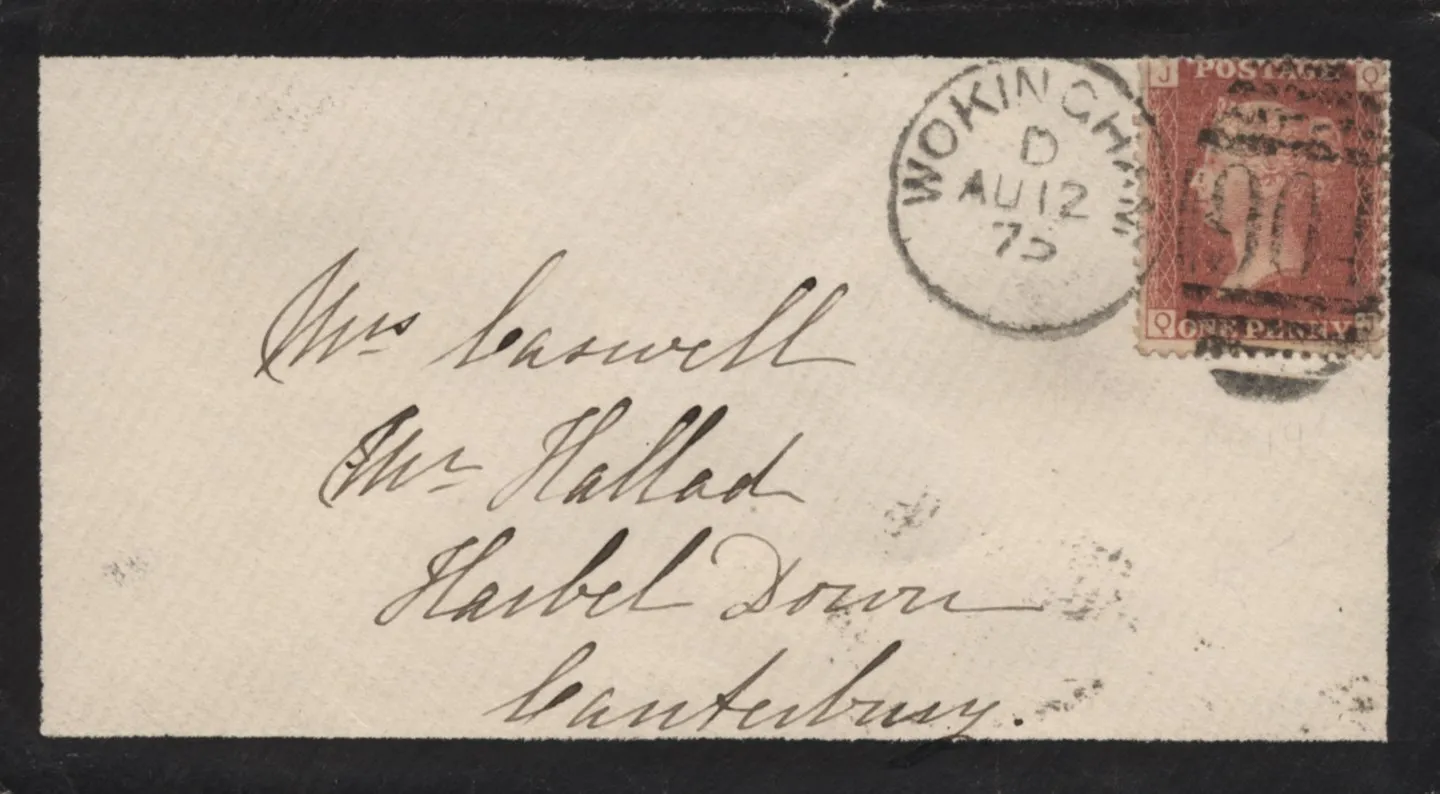 WOKINGHAM
D
AU 12
75
J POSTAGE Q
901
Q ONE PENNY J
Mrs Caswell
Mr Hallad
Harbel Down
Canterbury.